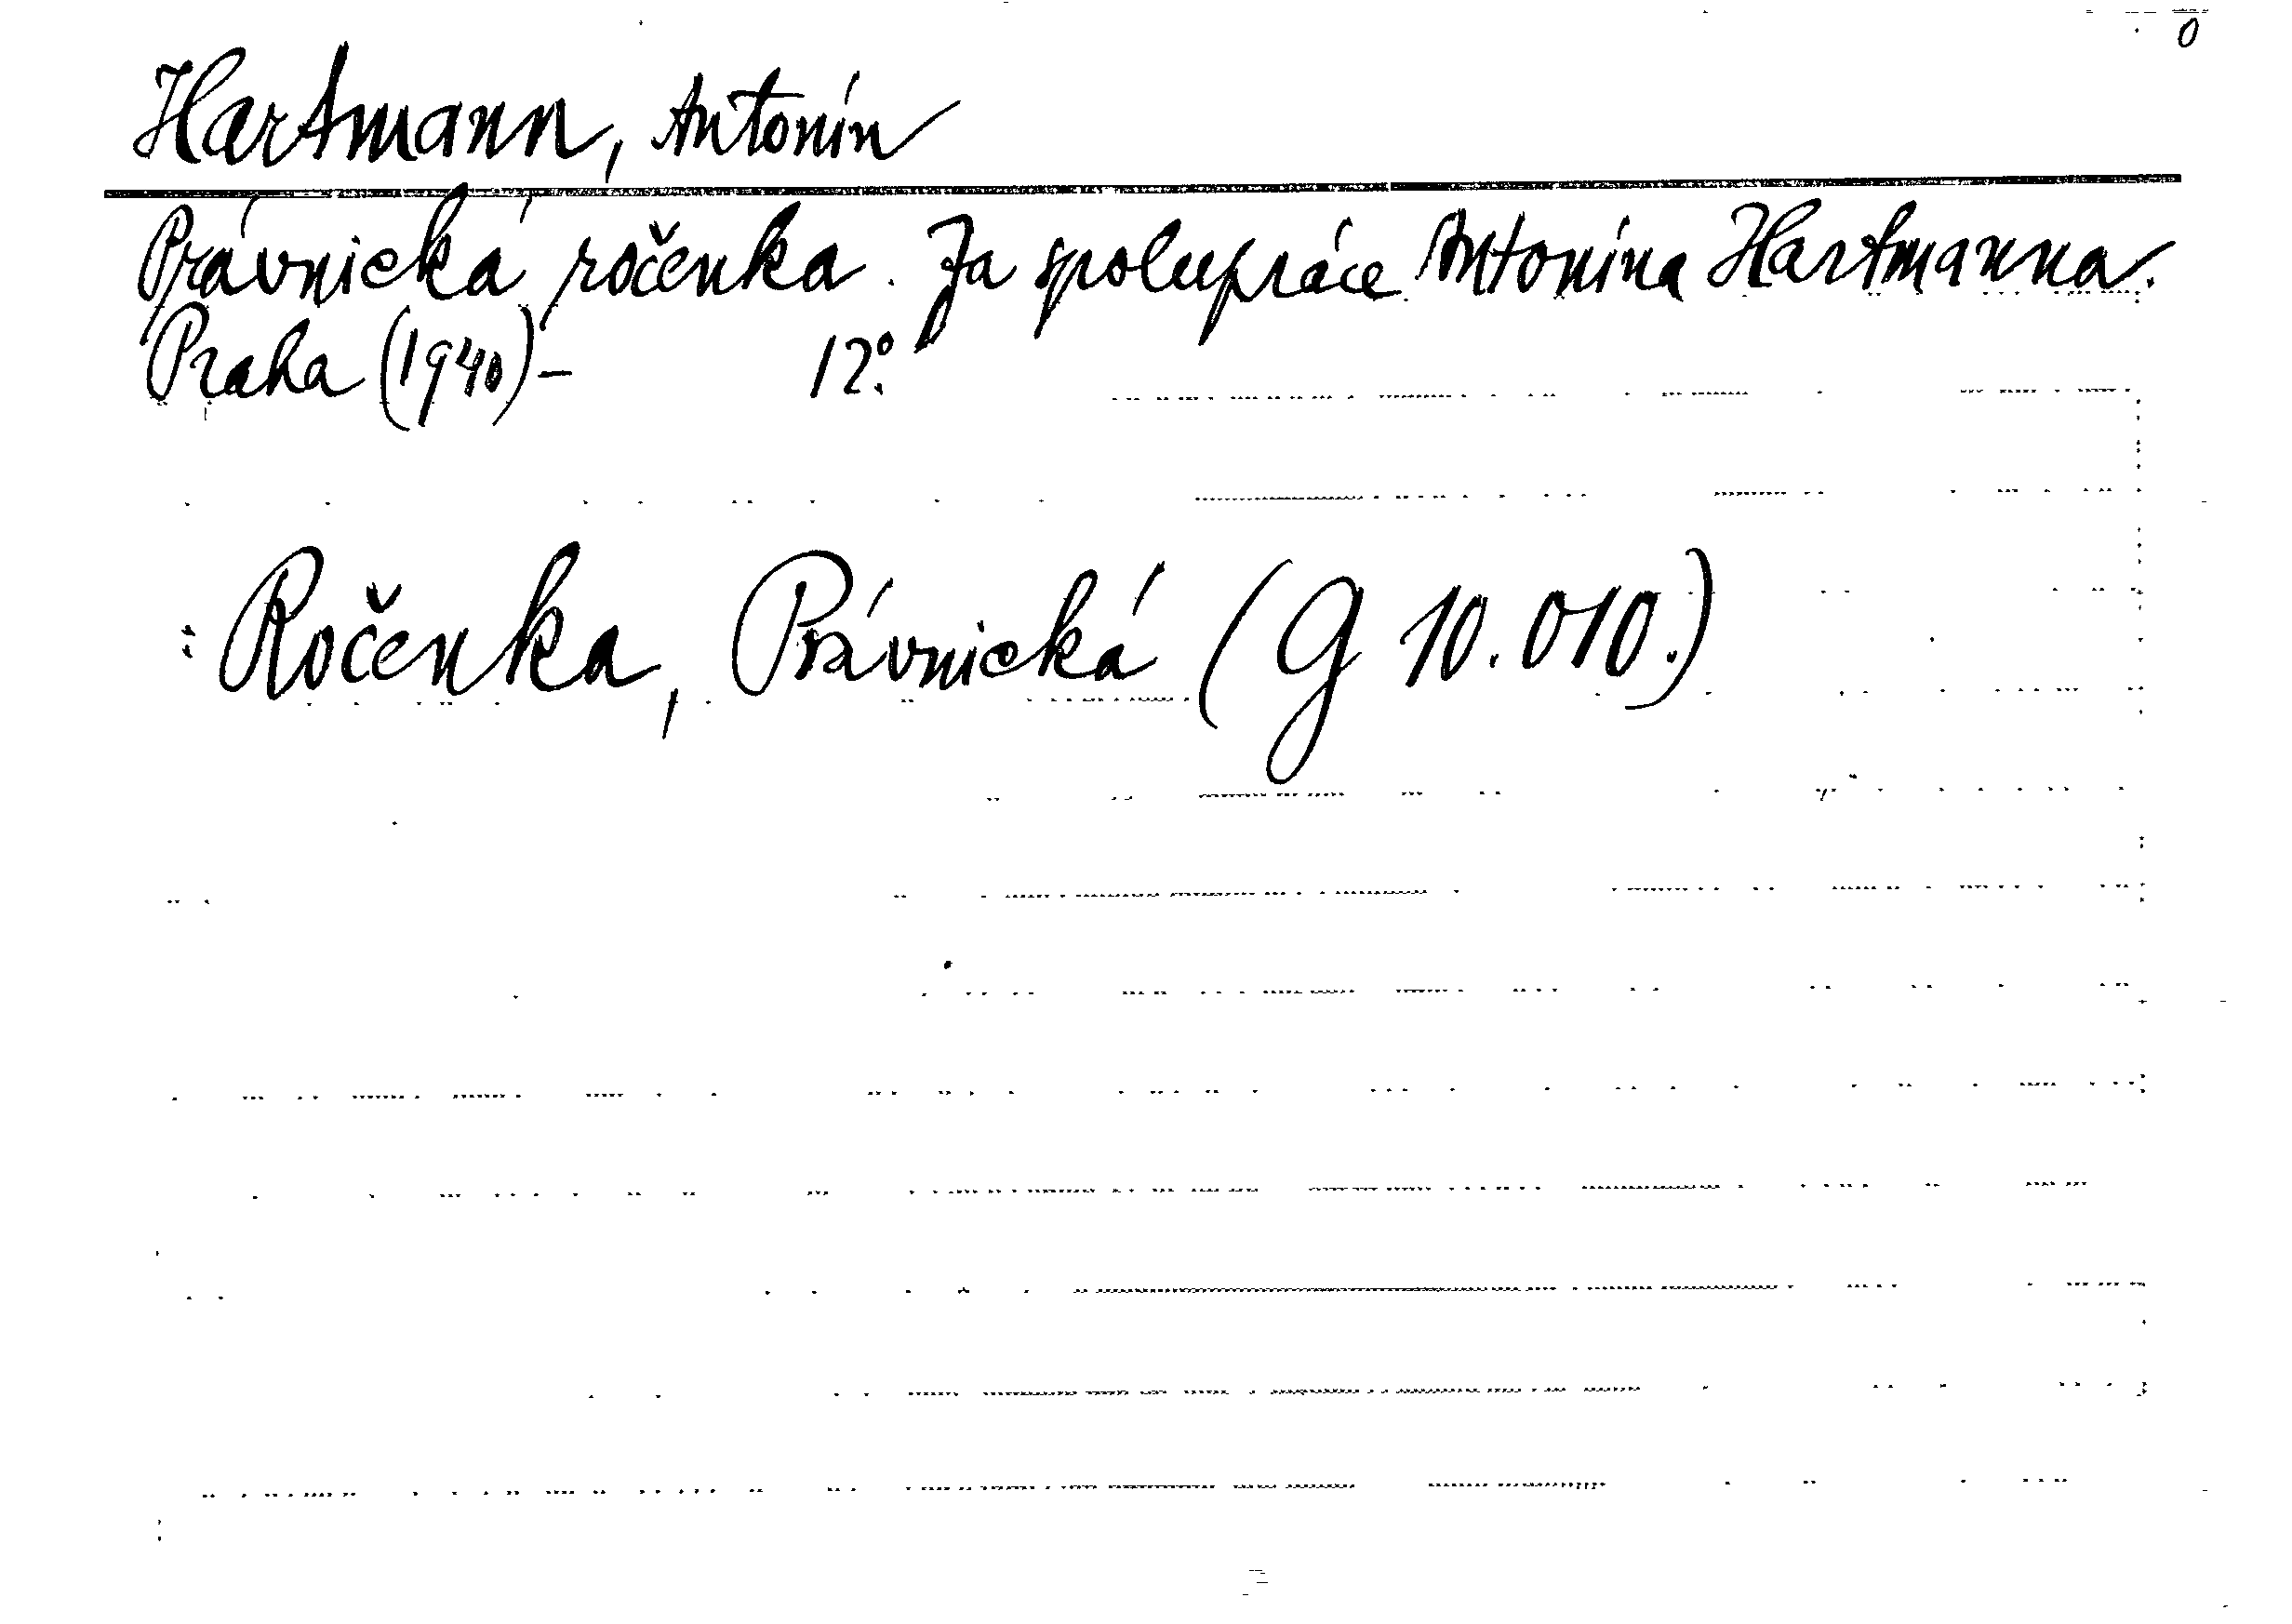 0
Hartmann, Antonín
Právnická ročenka. Za spolupráce Antonína Hartmanna.
Praha (1940)- 12°.
: Ročenka, Právnická (G 10.010.)